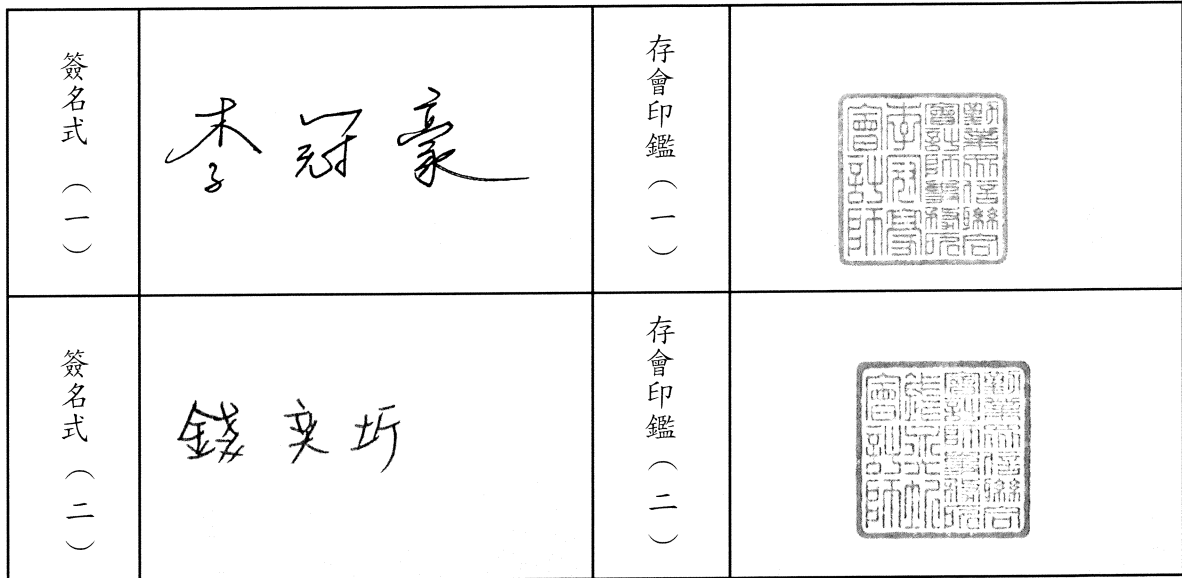 簽名式（一）
李冠豪
存會印鑑（一）
勤業眾信聯合
會計師事務所
李冠豪
會計師
簽名式（二）
錢奕圻
存會印鑑（二）
勤業眾信聯合
會計師事務所
會計師